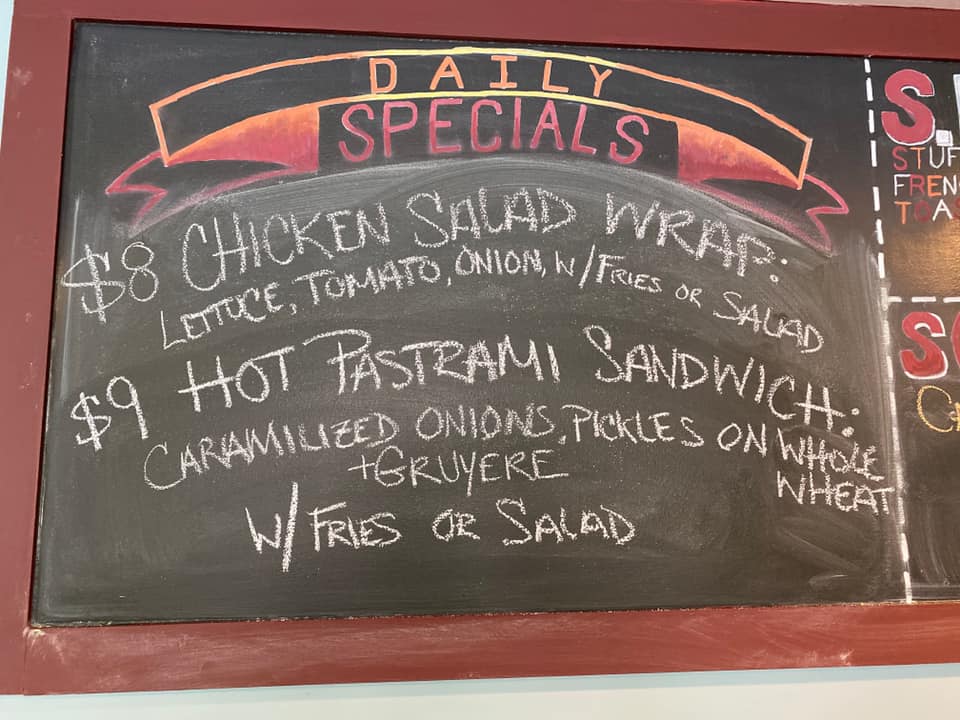 DAILY
SPECIALS
$8 CHICKEN SALAD WRAP:
LETTUCE, TOMATO, ONION, W/FRIES OR SALAD
$9 HOT PASTRAMI SANDWICH:
CARAMILIZED ONIONS, PICKLES ON WHOLE
+GRUYERE WHEAT
W/FRIES OR SALAD
S.
STUF
FREN
TOAS